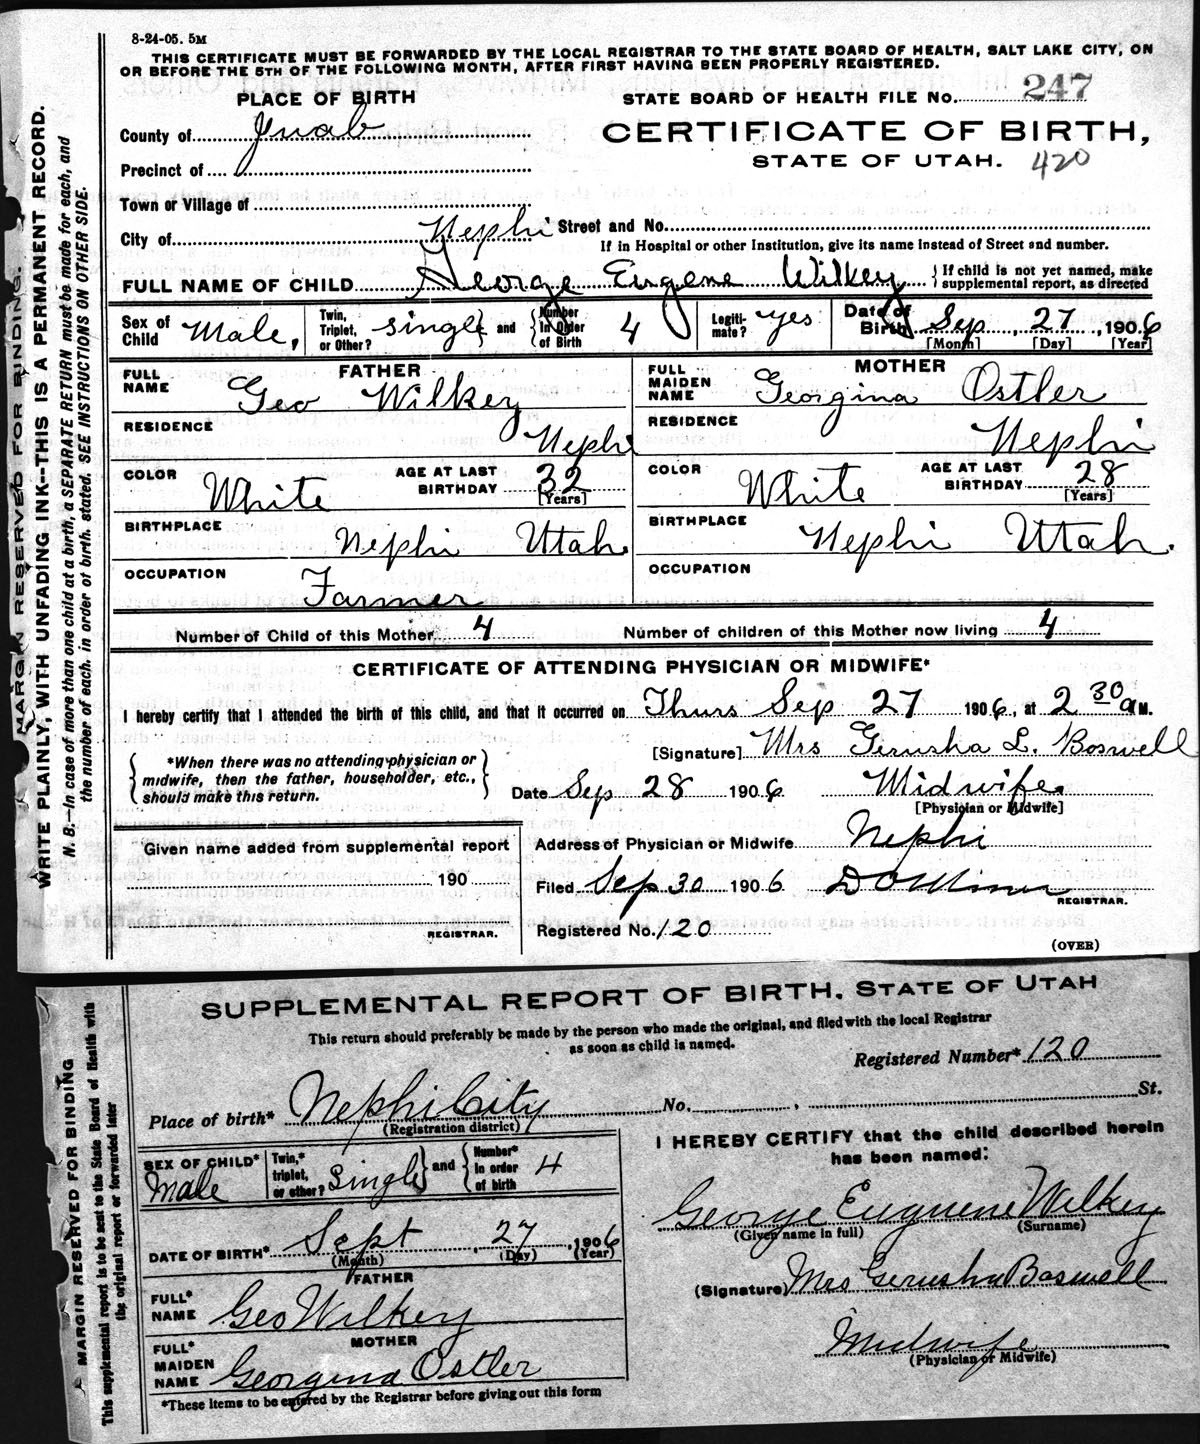 8-24-05. 5M
THIS CERTIFICATE MUST BE FORWARDED BY THE LOCAL REGISTRAR TO THE STATE BOARD OF HEALTH, SALT LAKE CITY, ON
OR BEFORE THE 5TH OF THE FOLLOWING MONTH, AFTER FIRST HAVING BEEN PROPERLY REGISTERED.
MARGIN RESERVED FOR BINDING.
WRITE PLAINLY, WITH UNFADING INK--THIS IS A PERMANENT RECORD.
N. B.--In case of more than one child at a birth, a SEPARATE RETURN must be made for each, and
the number of each, in order of birth, stated. SEE INSTRUCTIONS ON OTHER SIDE.
PLACE OF BIRTH
STATE BOARD OF HEALTH FILE No. 247
County of Juab
CERTIFICATE OF BIRTH,
STATE OF UTAH. 420
Precinct of
Town or Village of
City of Nephi Street and No.
If in Hospital or other Institution, give its name instead of Street and number.
FULL NAME OF CHILD George Eugene Wilkey { If child is not yet named, make supplemental report, as directed
Sex of Child Male, Twin, Triplet, or Other? single } and { Number in Order of Birth 4 Legiti-mate? yes Date of Birth Sep, 27, 1906
[Month] [Day] [Year]
FATHER MOTHER
FULL NAME Geo Wilkey FULL MAIDEN NAME Georgina Ostler
RESIDENCE Nephi RESIDENCE Nephi
COLOR White AGE AT LAST BIRTHDAY 32 [Years] COLOR White AGE AT LAST BIRTHDAY 28 [Years]
BIRTHPLACE Nephi Utah BIRTHPLACE Nephi Utah.
OCCUPATION Farmer OCCUPATION
Number of Child of this Mother 4 Number of children of this Mother now living 4
CERTIFICATE OF ATTENDING PHYSICIAN OR MIDWIFE*
I hereby certify that I attended the birth of this child, and that it occurred on Thurs Sep 27 1906, at 2 30 a M.
[Signature] Mrs Gerusha L. Boswell
{ *When there was no attending physician or midwife, then the father, householder, etc., should make this return. }
Date Sep 28 1906 Midwife.
[Physician or Midwife]
Given name added from supplemental report
190
REGISTRAR.
Address of Physician or Midwife Nephi
Filed Sep 30 1906 D O Miner
REGISTRAR.
Registered No. 120
(OVER)
MARGIN RESERVED FOR BINDING
This supplemental report is to be sent to the State Board of Health with
the original report or forwarded later
SUPPLEMENTAL REPORT OF BIRTH. STATE OF UTAH
This return should preferably be made by the person who made the original, and filed with the local Registrar
as soon as child is named.
Registered Number* 120
Place of birth* Nephi City No. , St.
(Registration district)
SEX OF CHILD* Male Twin,* triplet, or other? Single } and { Number* in order of birth 4
DATE OF BIRTH* Sept, 27, 1906
(Month) (Day) (Year)
FATHER
FULL* NAME Geo Wilkey
MOTHER
FULL* MAIDEN NAME Georgina Ostler
*These items to be entered by the Registrar before giving out this form
I HEREBY CERTIFY that the child described herein
has been named:
George Euguene Wilkey
(Given name in full) (Surname)
(Signature) Mrs Gerusha Boswell
Midwife
(Physician or Midwife)